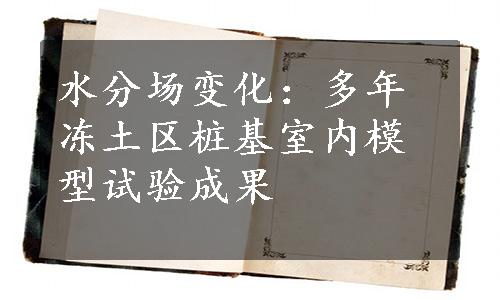 水分场变化：多年
冻土区桩基室内模
型试验成果